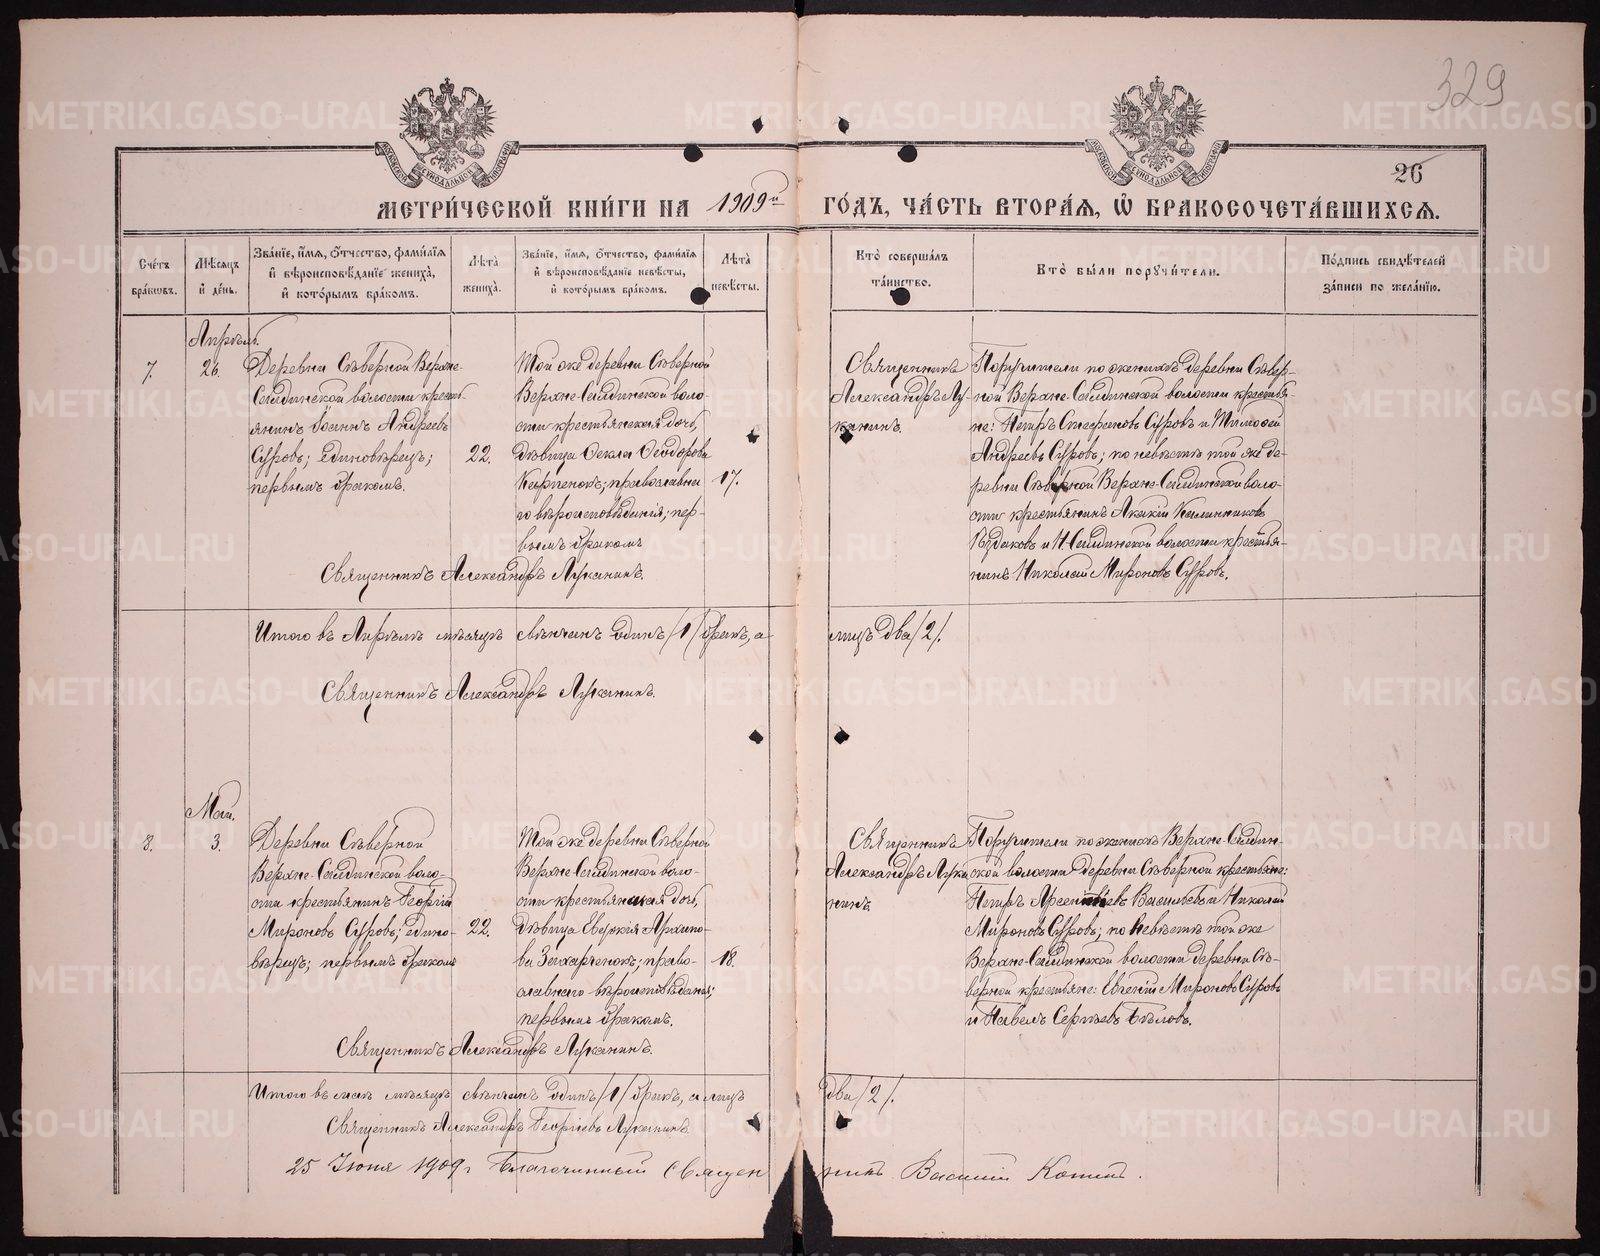 329
26
МЕТРИ́ЧЕСКОЙ КНИ́ГИ НА 1909й ГО́ДЪ, ЧА́СТЬ ВТОРА́Я, Ѡ҆ БРАКОСОЧЕТА́ВШИХСЯ.
Сче́тъ бра́ковъ.
Мѣ́сяцъ и де́нь.
Зва́нїе, и́мя, ѻ́тчество, фами́лїя и вѣроисповѣ́данїе жениха̀, и кото́рымъ бра́комъ.
Лѣ́та жениха̀.
Зва́нїе, и́мя, ѻ́тчество, фами́лїя и вѣроисповѣ́данїе невѣ́сты, и кото́рымъ бра́комъ.
Лѣ́та невѣ́сты.
Кто̀ соверша́лъ та́инство.
Кто̀ бы́ли порꙋчи́тели.
По́дпись свидѣ́телей за́писи по жела́нїю.
Апрѣль.
7.
26.
Деревни Сѣверной Верхне-
Салдинской волости кресть-
янинъ Іоаннъ Андреевъ
Суровъ; единовѣрецъ;
первымъ бракомъ.
22.
Той же деревни Сѣверной
Верхне-Салдинской воло-
сти крестьянская дочь,
дѣвица Ѳекла Ѳеодорова
православна
го вѣроисповѣданія; пер-
вымъ бракомъ
17.
Священникъ
Александръ Лу-
канинъ.
Поручители по женихѣ деревни Сѣвер-
ной Верхне-Салдинской волости крестья-
не: Петръ Стефановъ Суровъ и Тимофей
Андреевъ Суровъ; по невѣстѣ той же де-
ревни Сѣверной Верхне-Салдинской воло-
сти крестьянинъ Акакій Калинниковъ
и Н-Салдинской волости крестья-
нинъ Николай Мироновъ Суровъ.
Священникъ Александръ Луканинъ.
Итого въ Апрѣлѣ мѣсяцѣ свѣнчанъ одинъ /1/ бракъ, а лицъ два /2/.
Священникъ Александръ Луканинъ.
Май.
8.
3.
Деревни Сѣверной
Верхне-Салдинской воло-
сти крестьянинъ Георгій
Мироновъ Суровъ; едино-
вѣрецъ; первымъ бракомъ
22.
Той же деревни Сѣверной
Верхне-Салдинской воло-
сти крестьянская дочь,
дѣвица Евдокія Архипо-
ва Захарченокъ; право-
славнаго вѣроисповѣданія;
первымъ бракомъ.
18.
Священникъ
Александръ Лука
нинъ
Поручители по женихѣ Верхне-Салдин-
ской волости деревни Сѣверной крестьяне:
Петръ Арсеніевъ Васильевъ и Николай
Мироновъ Суровъ; по невѣстѣ той же
Верхне-Салдинской волости деревни Сѣ-
верной крестьяне: Евгеній Мироновъ Суровъ
и Павелъ Сергѣевъ Бѣловъ.
Священникъ Александръ Луканинъ.
Итого въ маѣ мѣсяцѣ свѣнчанъ одинъ /1/ бракъ, а лицъ два /2/.
Священникъ Александръ Георгіевъ Луканинъ
25 Іюня 1909 г Благочинный Священникъ Василій
METRIKI.GASO-URAL.RU